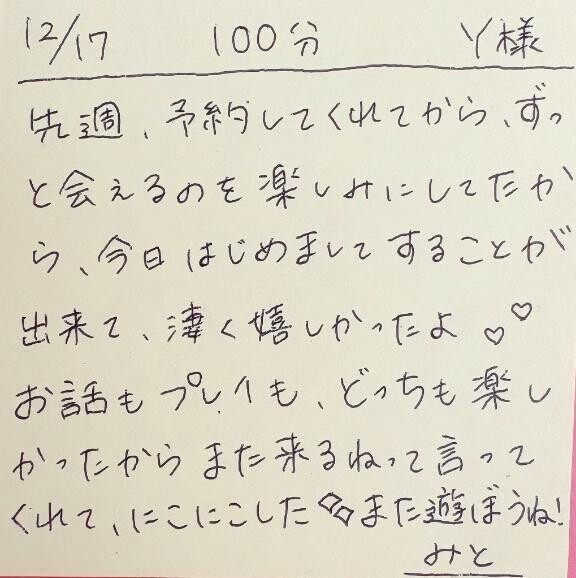 12/17 100分 Y様
先週、予約してくれてから、ずっ
と会えるのを楽しみにしてたか
ら、今日はじめましてすることが
出来て、凄く嬉しかったよ♡♡
お話もプレイも、どっちも楽し
かったからまた来るねって言って
くれて、にこにこした◇◇また遊ぼうね!
みと